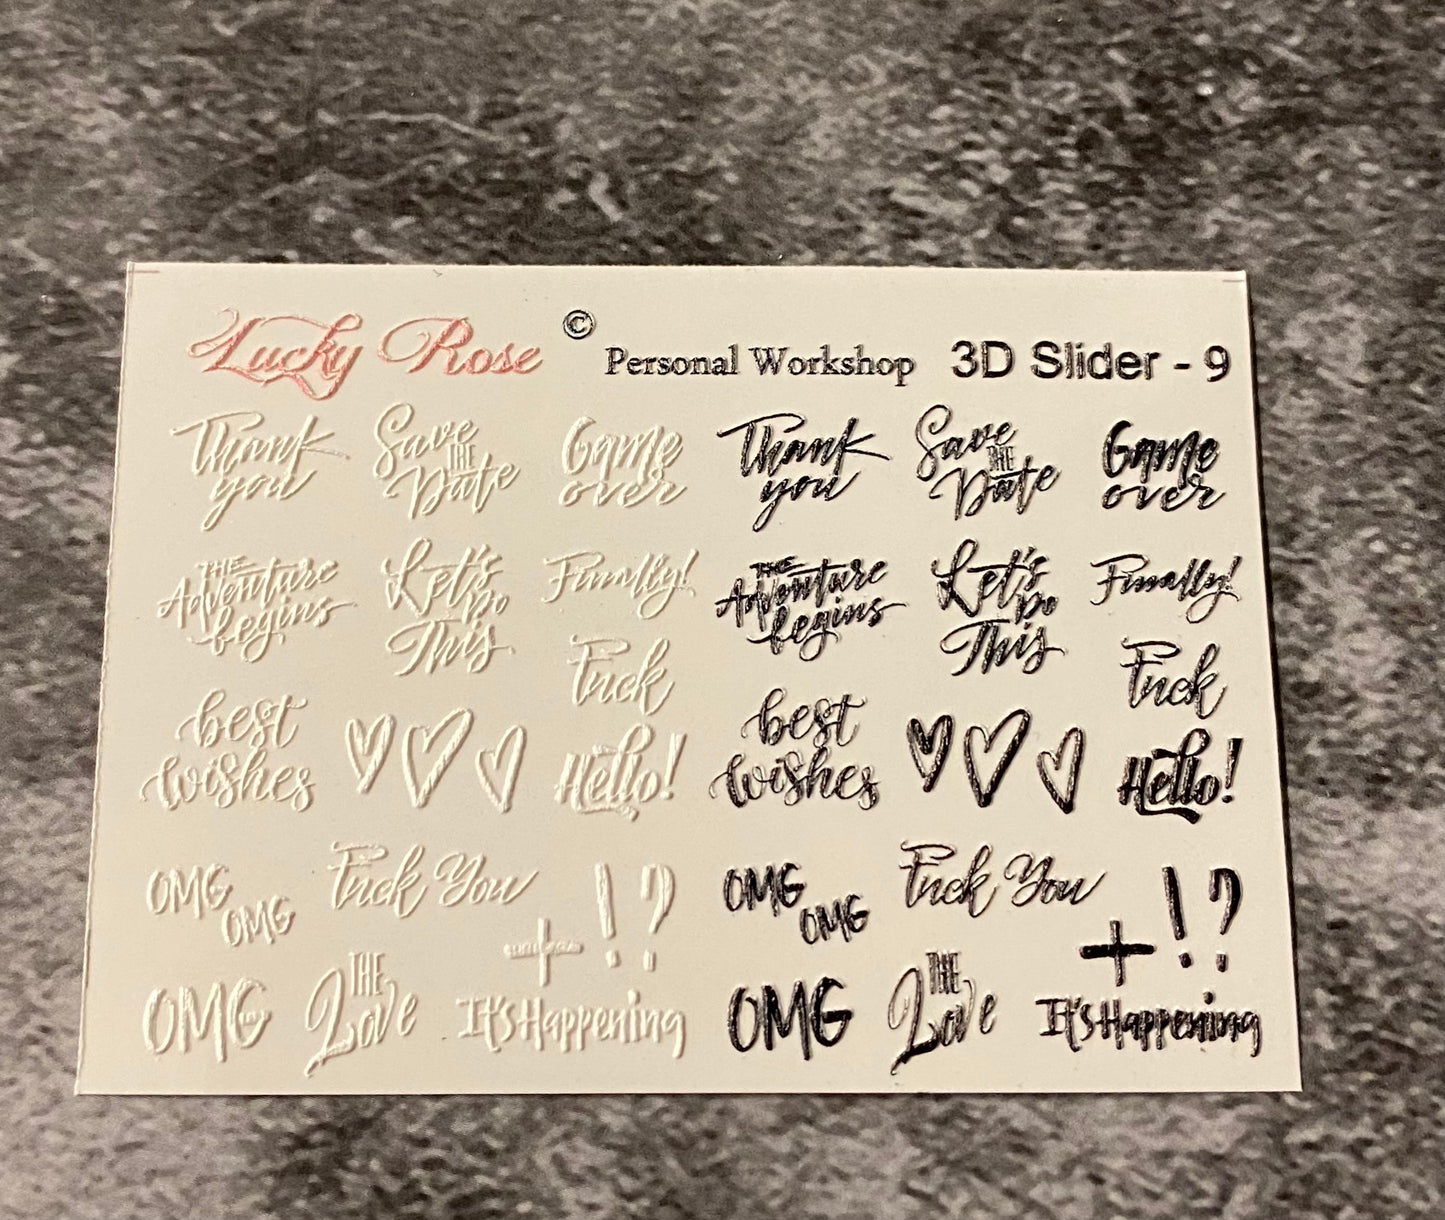 Lucky Rose © Personal Workshop 3D Slider - 9
Thank you
Save THE Date
Game over
Thank you
Save THE Date
Game over
THE Adventure begins
Let's Do This
Finally!
THE Adventure begins
Let's Do This
Finally!
Fuck
Fuck
best wishes
Hello!
best wishes
Hello!
OMG
OMG
Fuck You
! ?
OMG
OMG
Fuck You
! ?
+
+
OMG
THE Love
It's Happening
OMG
THE Love
It's Happening